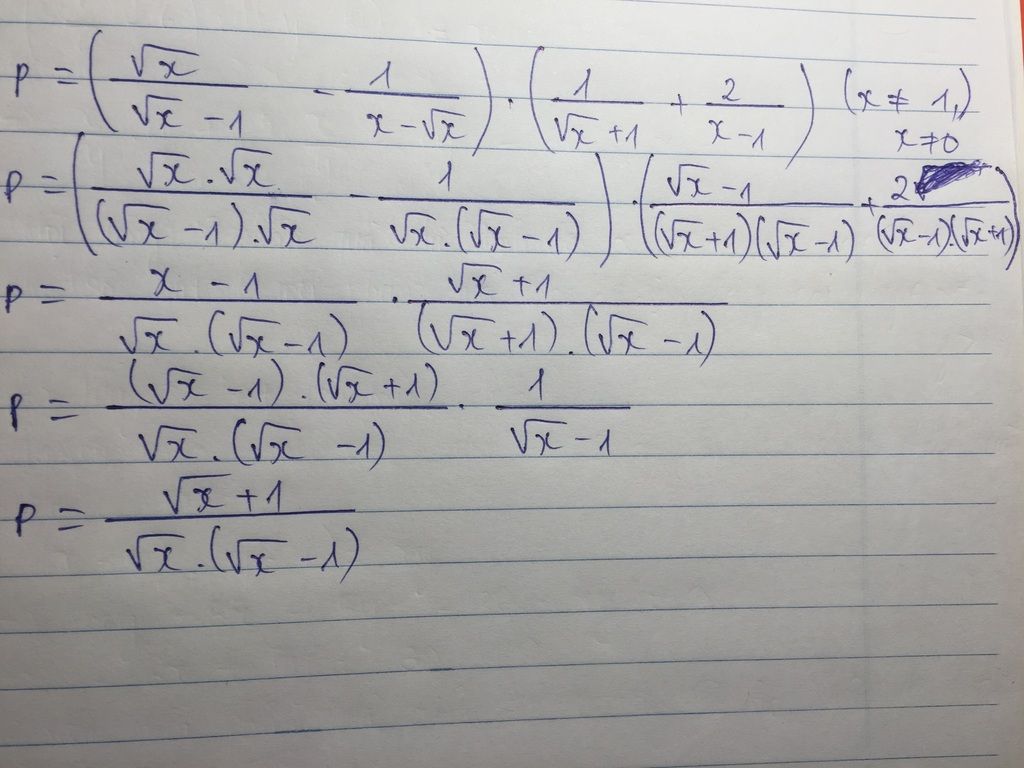 P = (√x / (√x - 1) - 1 / (x - √x)) · (1 / (√x + 1) + 2 / (x - 1)) (x ≠ 1, x ≠ 0)
P = (√x . √x / (√x - 1) . √x - 1 / √x . (√x - 1)) · (√x - 1 / (√x + 1) (√x - 1) + 2 / (√x - 1) . (√x + 1))
P = x - 1 / √x . (√x - 1) · √x + 1 / (√x + 1) . (√x - 1)
P = (√x - 1) . (√x + 1) / √x . (√x - 1) · 1 / √x - 1
P = √x + 1 / √x . (√x - 1)